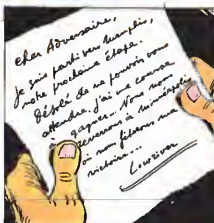 Cher Adversaire,
Je suis parti vers Memphis,
notre prochaine étape.
Désolé de ne pouvoir vous
attendre. J'ai une course
à gagner. Nous nous
reverrons à Minneapolis
où nous fêterons ma
victoire...